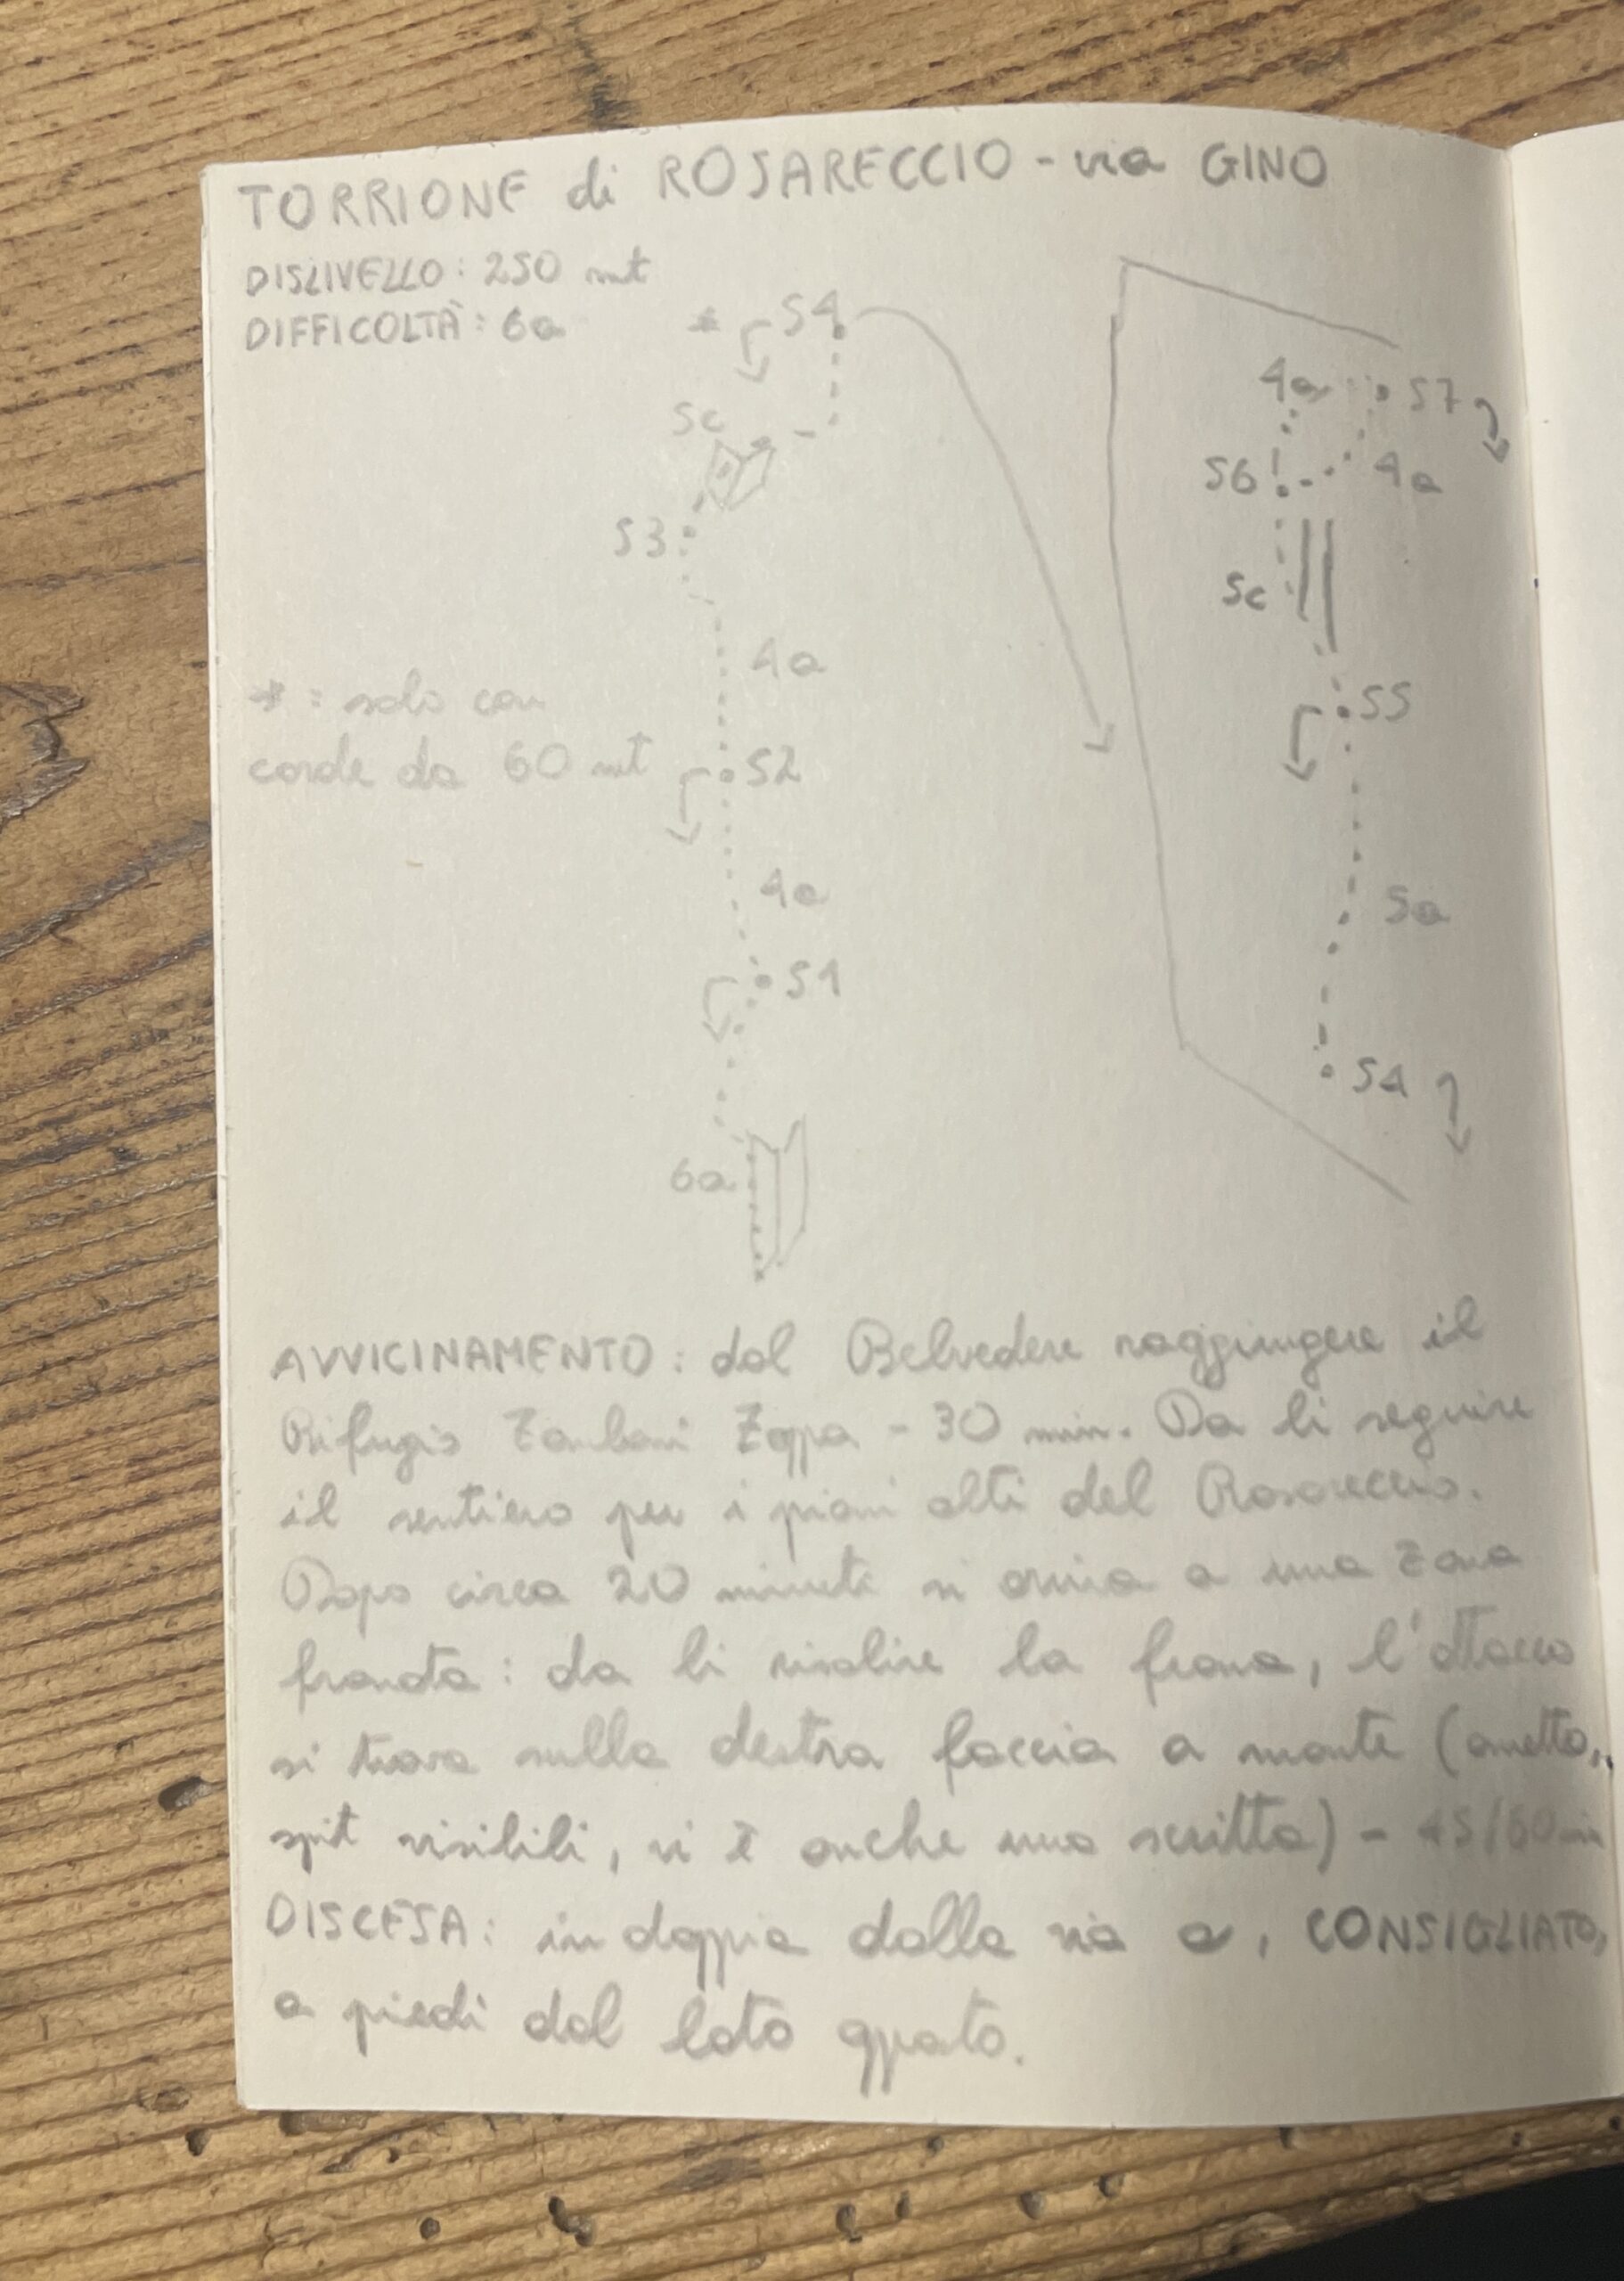 TORRIONE di ROSARECCIO - via GINO
DISLIVELLO: 250 mt
DIFFICOLTÀ: 6a
* S4
5c
S3
4a
*: solo con
corde da 60 mt
S2
4a
S1
6a
4a
S7
S6
4a
5c
S5
5a
S4
AVVICINAMENTO: dal Belvedere raggiungere il
Rifugio Zamboni Zappa - 30 min. Da lì seguire
il sentiero per i piani alti del Rosareccio.
Dopo circa 20 minuti si arriva a una zona
franata: da lì risalire la frana, l'attacco
si trova sulla destra faccia a monte (ometto,
spit visibili, vi è anche una scritta) - 45/60 min
DISCESA: in doppia dalla via o, CONSIGLIATO,
a piedi dal lato opposto.